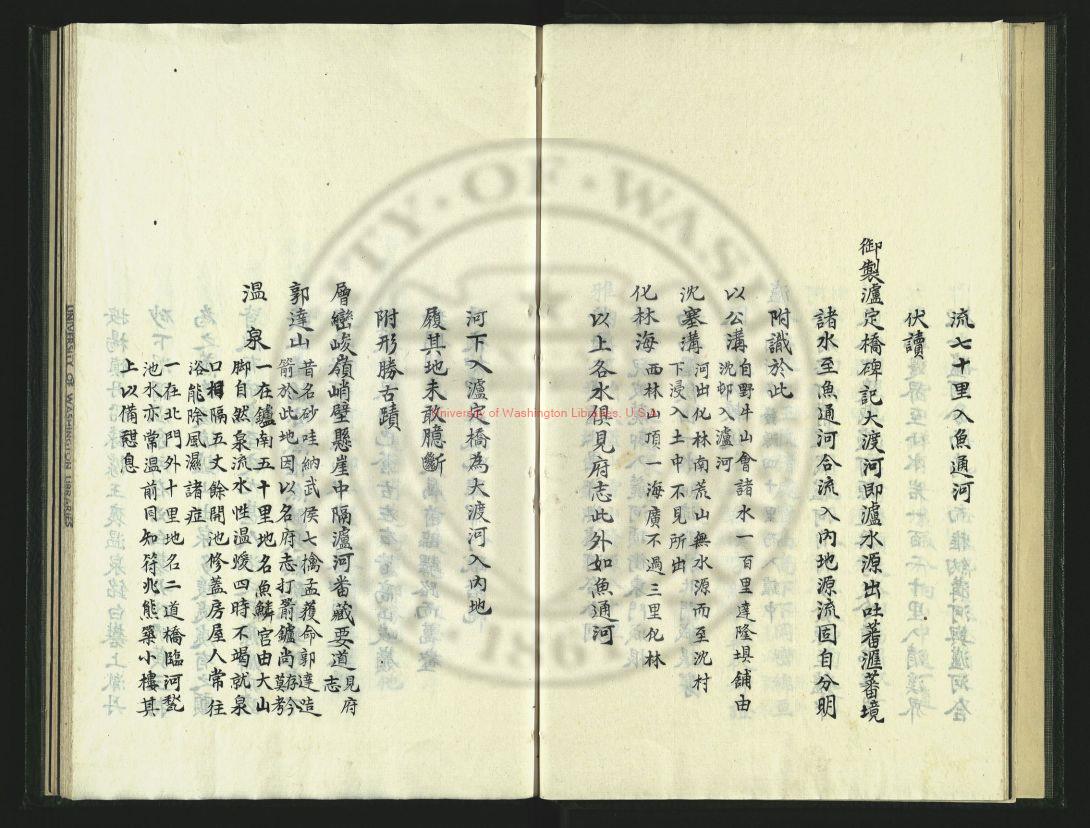 流七十里入魚通河
伏讀
御製瀘定橋碑記大渡河即瀘水源出吐蕃滙蕃境
諸水至魚通河合流入內地源流固自分明
附識於此
以公溝自野牛山會諸水一百里達隆埧舖由
沈邨入瀘河
沈塞溝河出化林南荒山無水源而至沈村
下浸入土中不見所出
化林海西林山頂一海廣不過三里化林
以上各水俱見府志此外如魚通河
河下入瀘定橋為大渡河入內地
履其地未敢臆斷
附形勝古蹟
層巒峻嶺峭壁懸崖中隔瀘河畨藏要道見府
志
郭達山昔名砂哇納武侯七擒孟獲命郭達造
箭於此地因以名府志打箭鑪尚存今
莫考
溫泉一在鑪南五十里地名魚鱗宮由大山
脚自然泉流水性溫煖四時不竭就泉
口相隔五丈餘開池修蓋房屋人常往
浴能除風濕諸症
一在北門外十里地名二道橋臨河甃
池水亦常溫前同知符兆熊築小樓其
上以備憇息
University of Washington Libraries, U.S.A
UNIVERSITY OF WASHINGTON LIBRARIES